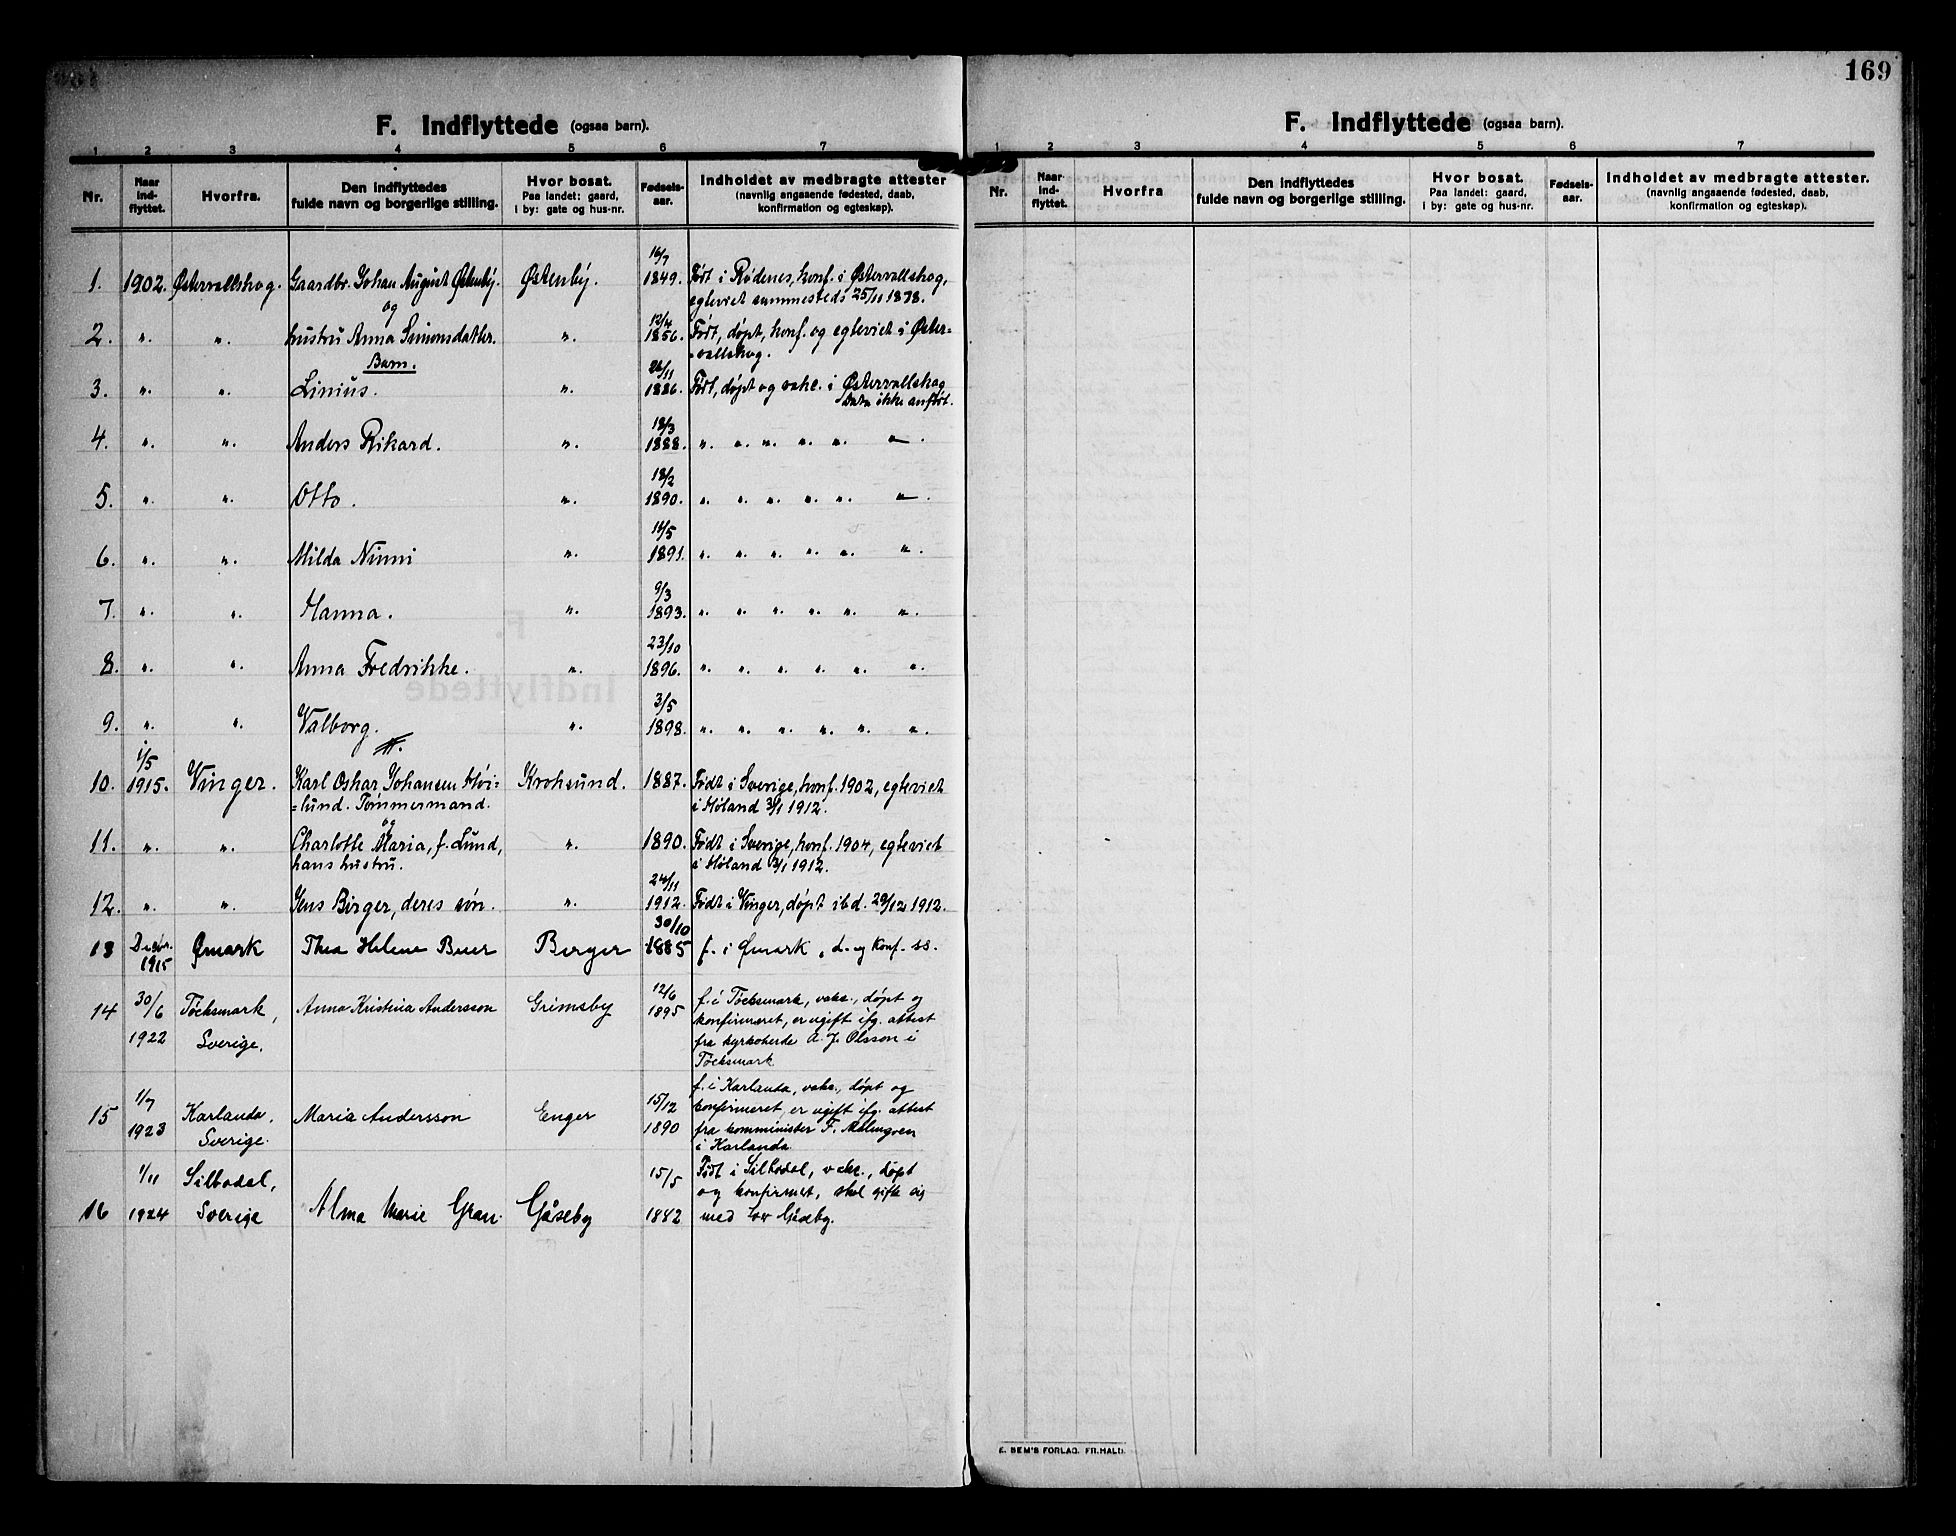 169
F. Indflyttede (ogsaa barn).
1 2 3 4 5 6 7
Nr. Naar ind-flyttet. Hvorfra. Den indflyttedes fulde navn og borgerlige stilling. Hvor bosat. Paa landet: gaard, i by: gate og hus-nr. Fødsels-aar. Indholdet av medbragte attester (navnlig angaaende fødested, daab, konfirmation og egteskap).
16/7
1. 1902. Østervallskog. Gaardbr. Johan August Østenby. Østenby. 1849. Født i Rødenes, konf. i Østervallskog,
og egteviet sammesteds 25/11 1878.
12/4
2. " " hustru Anna Simonsdatter. " 1856. Født, døpt, konf. og egteviet i Øster=
Barn. =vallskog.
26/11
3. " " Linius. " 1886. Født, døpt og vakc. i Østervallskog
Data ikke anført.
18/3
4. " " Anders Rikard. " 1888. " " " " " "
18/2
5. " " Otto. " 1890. " " " " " "
14/5
6. " " Milda Ninni " 1891. " " " " " "
9/3
7. " " Hanna. " 1893. " " " " " "
23/10
8. " " Anna Fredrikke. " 1896. " " " " " "
3/5
9. " " Valborg. " 1898. " " " " " "
1/5
10. 1915. Vinger. Karl Oskar Johansen Hör= Krohsund. 1887. Født i Sverige, konf. 1902, egteviet
=lund. Tømmermand. i Høland 3/1 1912.
og
11. " " Charlotte Maria, f. Lund, " 1890. Født i Sverige, konf. 1904, egteviet
hans hustru. i Høland 3/1 1912.
24/11
12. " " Jens Birger, deres søn. " 1912. Født i Vinger, døpt ibd. 29/12 1912.
30/10
13 Desbr. 1915 Ømark Thea Helene Buer Berger 1885 f. i Ømark, d. og konf. ss.
14 30/6 1922 Töcksmark, Sverige. Anna Kristina Andersson Grimsby 12/6 1895 f. i Töcksmark, vakc., døpt og
konfirmeret, er ugift ifg. attest
fra kyrkoherde A. J. Olsson i
Töcksmark
f. i Karlanda, vakc., døpt og
15 1/7 1923 Karlanda, Sverige. Maria Andersson Enger 15/12 1890 konfirmeret, er ugift ifg. attest
fra komminister F. Malmgren
i Karlanda
1/11 Silbodal, 15/5 Født i Silbodal, vakc., døpt
og konfirmert, skal gifte sig
16 1924 Sverige Alma Marie Gran. Gåseby 1882 med Gåseby.
F. Indflyttede (ogsaa barn).
1 2 3 4 5 6 7
Nr. Naar ind-flyttet. Hvorfra Den indflyttedes fulde navn og borgerlige stilling. Hvor bosat. Paa landet: gaard, i by: gate og hus-nr. Fødsels-aar. Indholdet av medbragte attester. (navnlig angaaende fødested, daab, konfirmation og egteskap).
E. SEM'S FORLAG. FR.HALD.